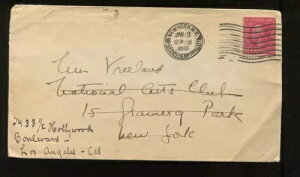 NEW YORK, N.Y.
Vreeland
National Arts Club
15 Gramercy Park
New York
2433 1/2 Hollywood
Boulevard
Los Angeles - Cal